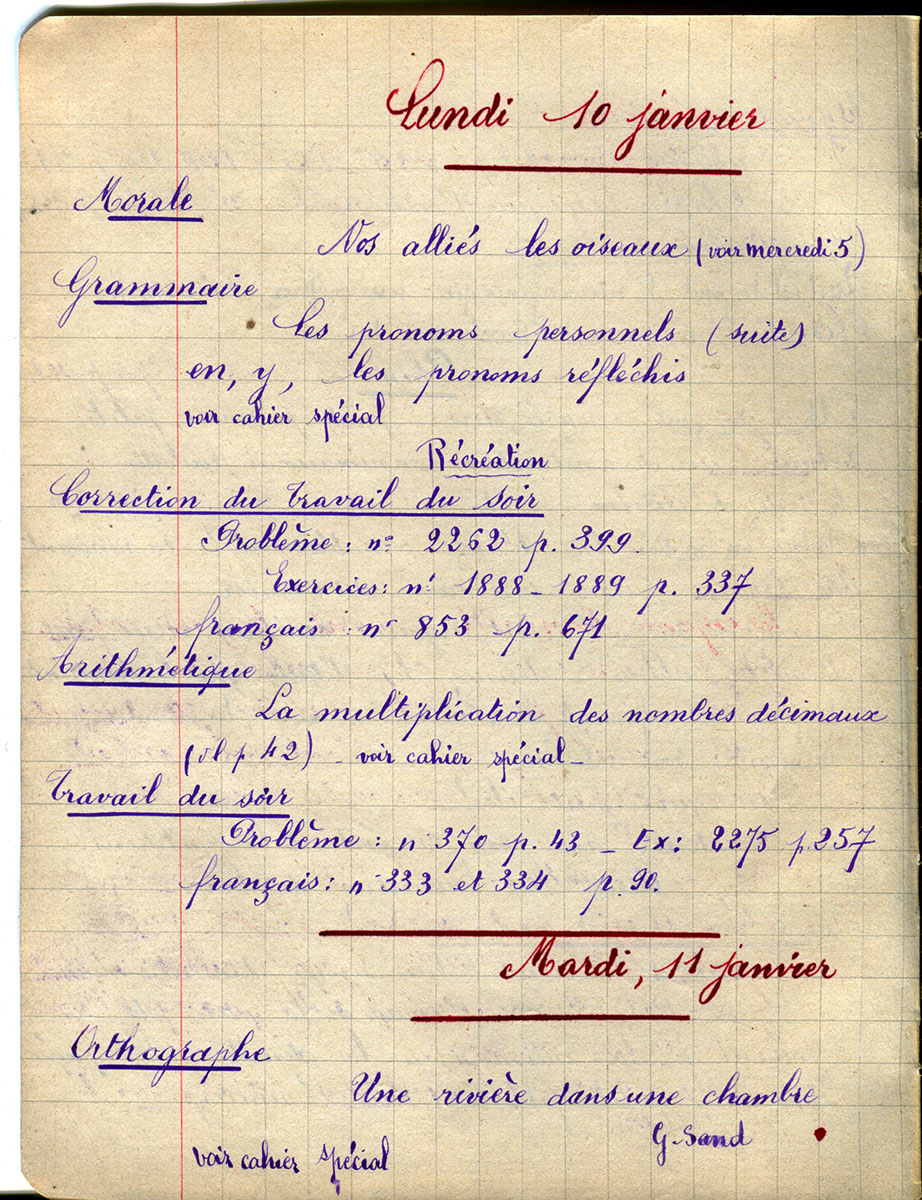 Lundi 10 janvier
Morale
Nos alliés les oiseaux (voir mercredi 5)
Grammaire
Les pronoms personnels (suite)
en, y, les pronoms réfléchis
voir cahier spécial
Récréation
Correction du travail du soir
Problème : n° 2262 p. 399.
Exercices : n° 1888 - 1889 p. 337
français : n° 853 p. 671
Arithmétique
La multiplication des nombres décimaux
(p. 42) - voir cahier spécial -
Travail du soir
Problème : n° 370 p. 43 - Ex : 2275 p 257
français : n° 333 et 334 p. 90.
Mardi, 11 janvier
Orthographe
Une rivière dans une chambre
G. Sand
voir cahier spécial